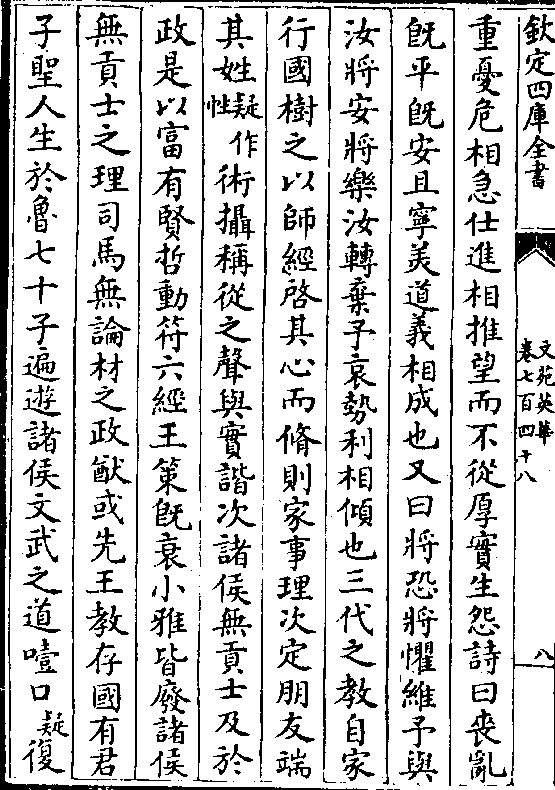 欽定四庫全書
文苑英華
卷七百四十八
八
重憂危相急仕進相推望而不從厚實生怨詩曰喪亂
既平既安且寧美道義相成也又曰將恐將懼維予與
汝將安將樂汝轉棄予哀勢利相傾也三代之教自家
行國樹之以師經啓其心而脩則家事理次定朋友端
其姓疑作性術攝稱從之聲與實諧次諸侯無貢士及於
政是以富有賢哲動符六經王策既衰小雅皆廢諸侯
無貢士之理司馬無論材之政猷或先王教存國有君
子聖人生於魯七十子遍遊諸侯文武之道噎口疑復